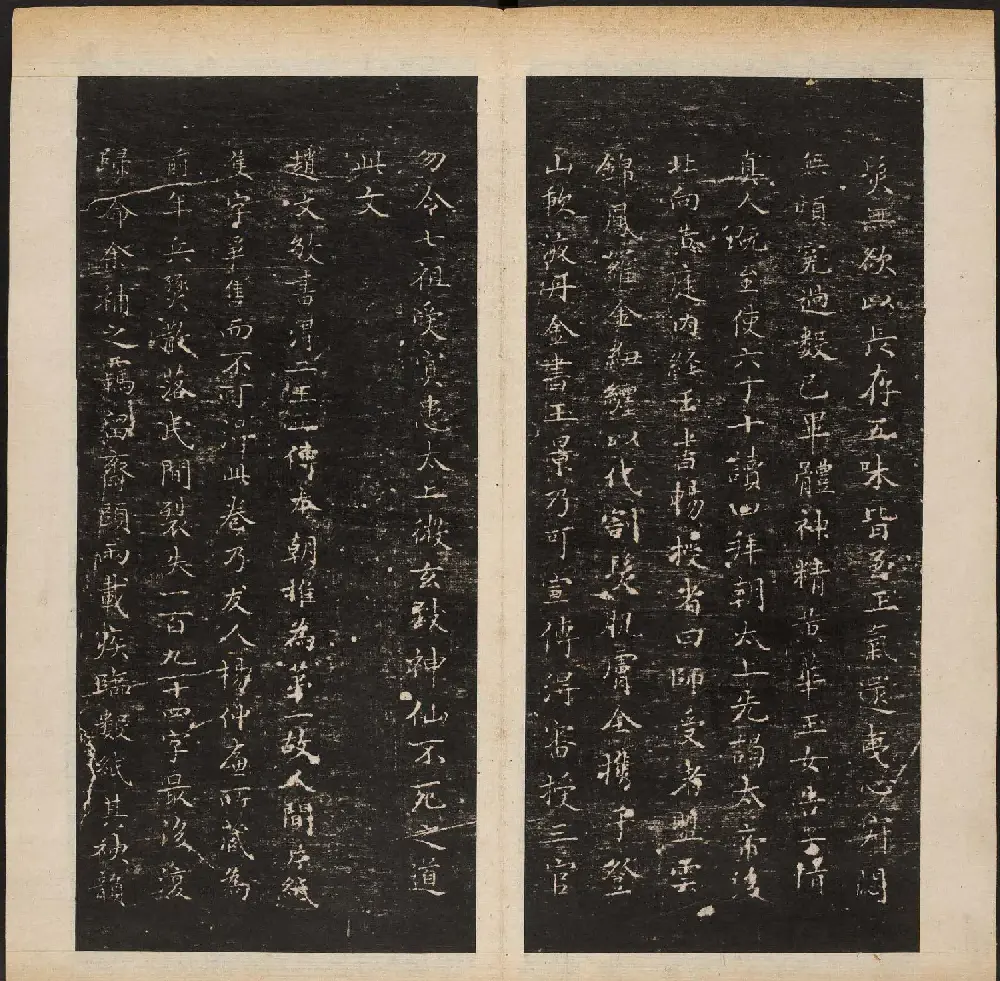 無欲以長存五味皆至正氣還夷心寂悶
無煩冤過數已畢體神精黃華玉女告子情
真人既至使六丁十讀四拜朝太上先謁太帝後
北向黃庭內經玉書暢授者曰師受者盟雲
錦鳳羅金鈕纏以代割髮肌膚全攜手登
山歃液丹金書玉景乃可宣傳得審授三官
勿令七祖受冥患太上微言致神仙不死之道
此文
趙文敏書得二王傳本朝推為第一故人間片紙
隻字爭售而不可得此卷乃友人楊仲庵所藏為
前年兵燹散落民間裂失一百九十四字最後復
歸命余補之羈留齋頭兩載疾臨數紙其神韻